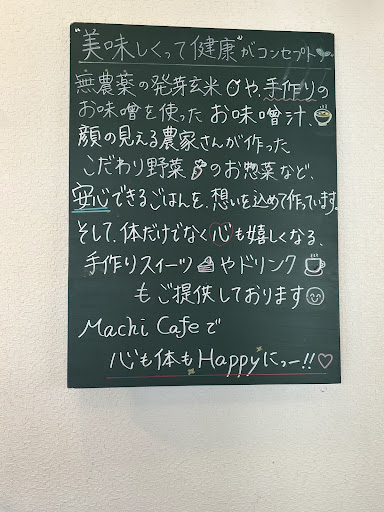 "美味しくって健康"がコンセプト
無農薬の発芽玄米や、手作りの
お味噌を使ったお味噌汁、
顔の見える農家さんが作った
こだわり野菜のお惣菜など、
安心できるごはんを、想いを込めて作っています。
そして、体だけでなく心も嬉しくなる、
手作りスイーツやドリンク
もご提供しております
Machi Cafeで
心も体もHappyにっー!!♡